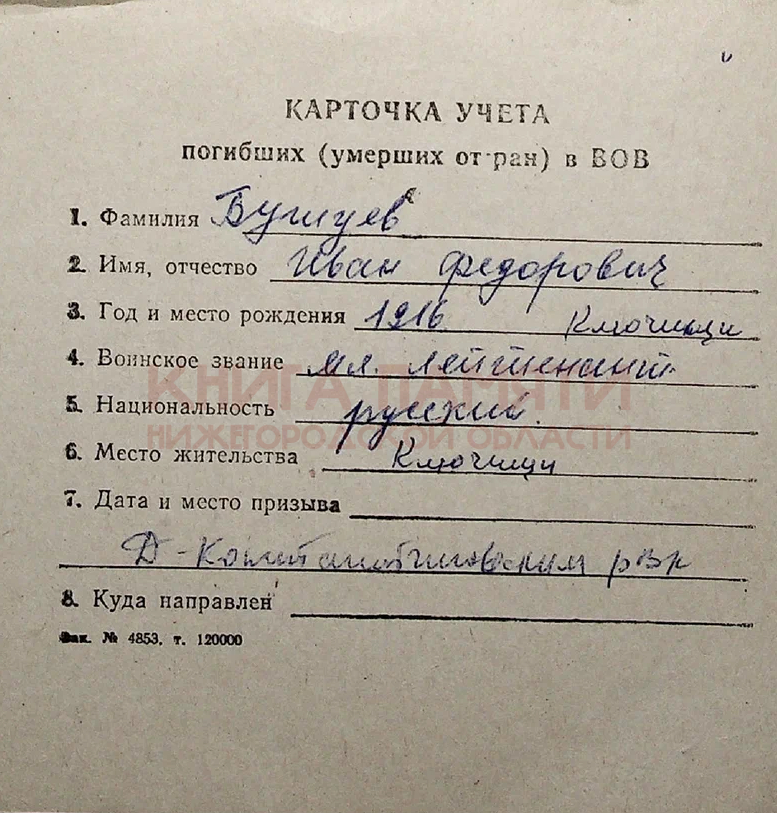 КАРТОЧКА УЧЕТА
погибших (умерших от ран) в ВОВ
1. Фамилия Бушуев
2. Имя, отчество Иван Федорович
3. Год и место рождения 1916 Ключищи
4. Воинское звание мл. лейтенант
КНИГА ПАМЯТИ
5. Национальность русский.
НИЖЕГОРОДСКОЙ ОБЛАСТИ
6. Место жительства Ключищи
7. Дата и место призыва
Д-Константиновским рвк
8. Куда направлен
Зак. № 4853, т. 120000